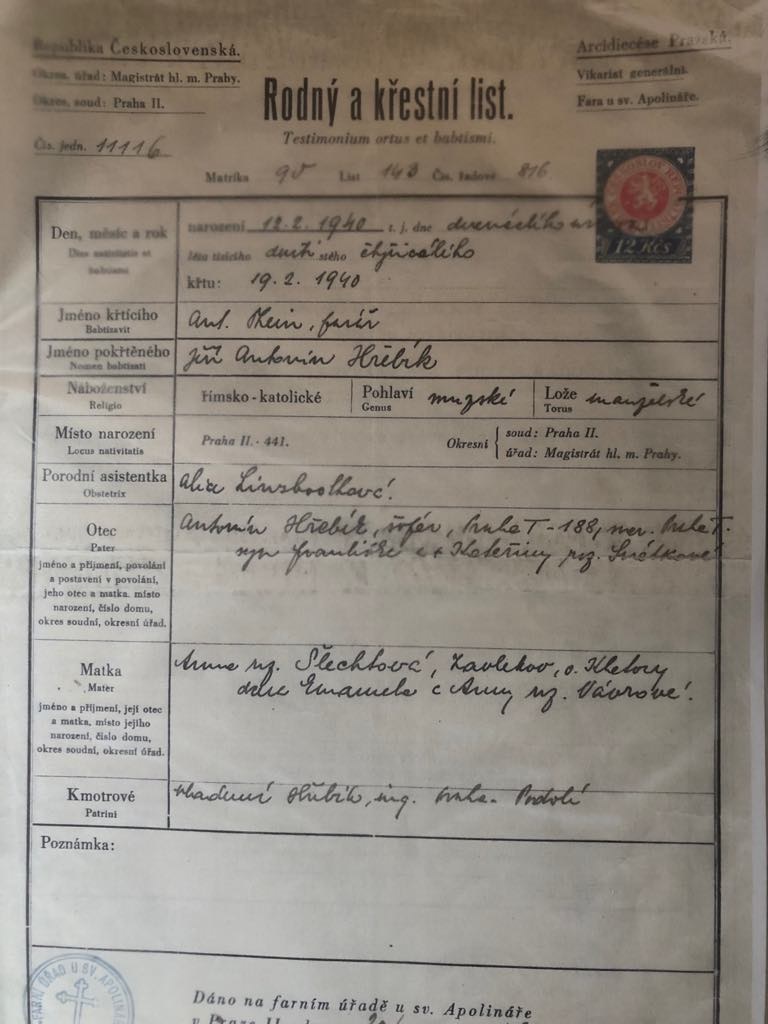 Republika Československá.
Okres. úřad: Magistrát hl. m. Prahy.
Okres. soud: Praha II.
Čís. jedn. 11116
Arcidiecése Pražská.
Vikariát generální.
Fara u sv. Apolináře.
Rodný a křestní list.
Testimonium ortus et babtismi.
Matrika 9V List 143 Čís. řadové 816
12 Kčs
Den, měsíc a rok
Dies nativitatis et
babtismi
narození 12.2.1940 t. j. dne dvanáctého
léta tisícího stého čtyřicátého
křtu: 19.2.1940
Jméno křtícího
Babtizavit
Ant. farář
Jméno pokřtěného
Nomen babtizati
Jiří Antonín Hřebík
Náboženství
Religio
římsko-katolické
Pohlaví
Genus
mužské
Lože
Torus
manželské
Místo narození
Locus nativitatis
Praha II.- 441.
Okresní
soud: Praha II.
úřad: Magistrát hl. m. Prahy.
Porodní asistentka
Obstetrix
Otec
Pater
jméno a příjmení, povolání
a postavení v povolání,
jeho otec a matka. místo
narození, číslo domu,
okres soudní, okresní úřad.
Antonín Hřebík, šofér, Praha I-188,
syn Františka a + Kateřiny roz.
Matka
Mater
jméno a příjmení, její otec
a matka, místo jejího
narození, číslo domu,
okres soudní, okresní úřad.
Anna roz. Šlechtová, o. Klatovy
dcera Emanuela a Anny roz. Vávrové.
Kmotrové
Patrini
Hřebík, ing. Praha - Podolí
Poznámka:
FARNÍ ÚŘAD U SV. APOLINÁŘE
Dáno na farním úřadě u sv. Apolináře
v Praze II.